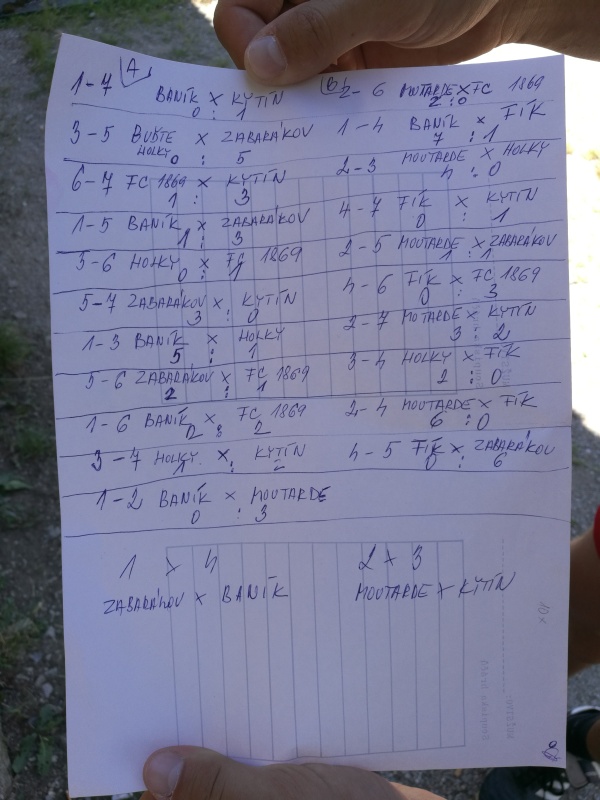 A
1-7 BANÍK x KYTÍN
0 : 1
3-5 BUŠTE HOLKY x ZABARÁKOV
0 : 5
6-7 FC 1869 x KYTÍN
1 : 3
1-5 BANÍK x ZABARÁKOV
1 : 3
3-6 HOLKY x FC 1869
0 : 1
5-7 ZABARÁKOV x KYTÍN
3 : 0
1-3 BANÍK x HOLKY
5 : 1
5-6 ZABARÁKOV x FC 1869
2 : 1
1-6 BANÍK x FC 1869
2 : 2
3-7 HOLKY x KYTÍN
1 : 2
1-2 BANÍK x MOUTARDE
0 : 3
B
2-6 MOUTARDE x FC 1869
2 : 0
1-4 BANÍK x FÍK
7 : 1
2-3 MOUTARDE x HOLKY
4 : 0
4-7 FÍK x KYTÍN
0 : 1
2-5 MOUTARDE x ZABARÁKOV
1 : 1
4-6 FÍK x FC 1869
0 : 3
2-7 MOTARDE x KYTÍN
3 : 2
3-4 HOLKY x FÍK
2 : 0
2-4 MOUTARDE x FÍK
6 : 0
4-5 FÍK x ZABARÁKOV
0 : 6
1 x 4
ZABARÁKOV x BANÍK
2 x 3
MOUTARDE x KYTÍN